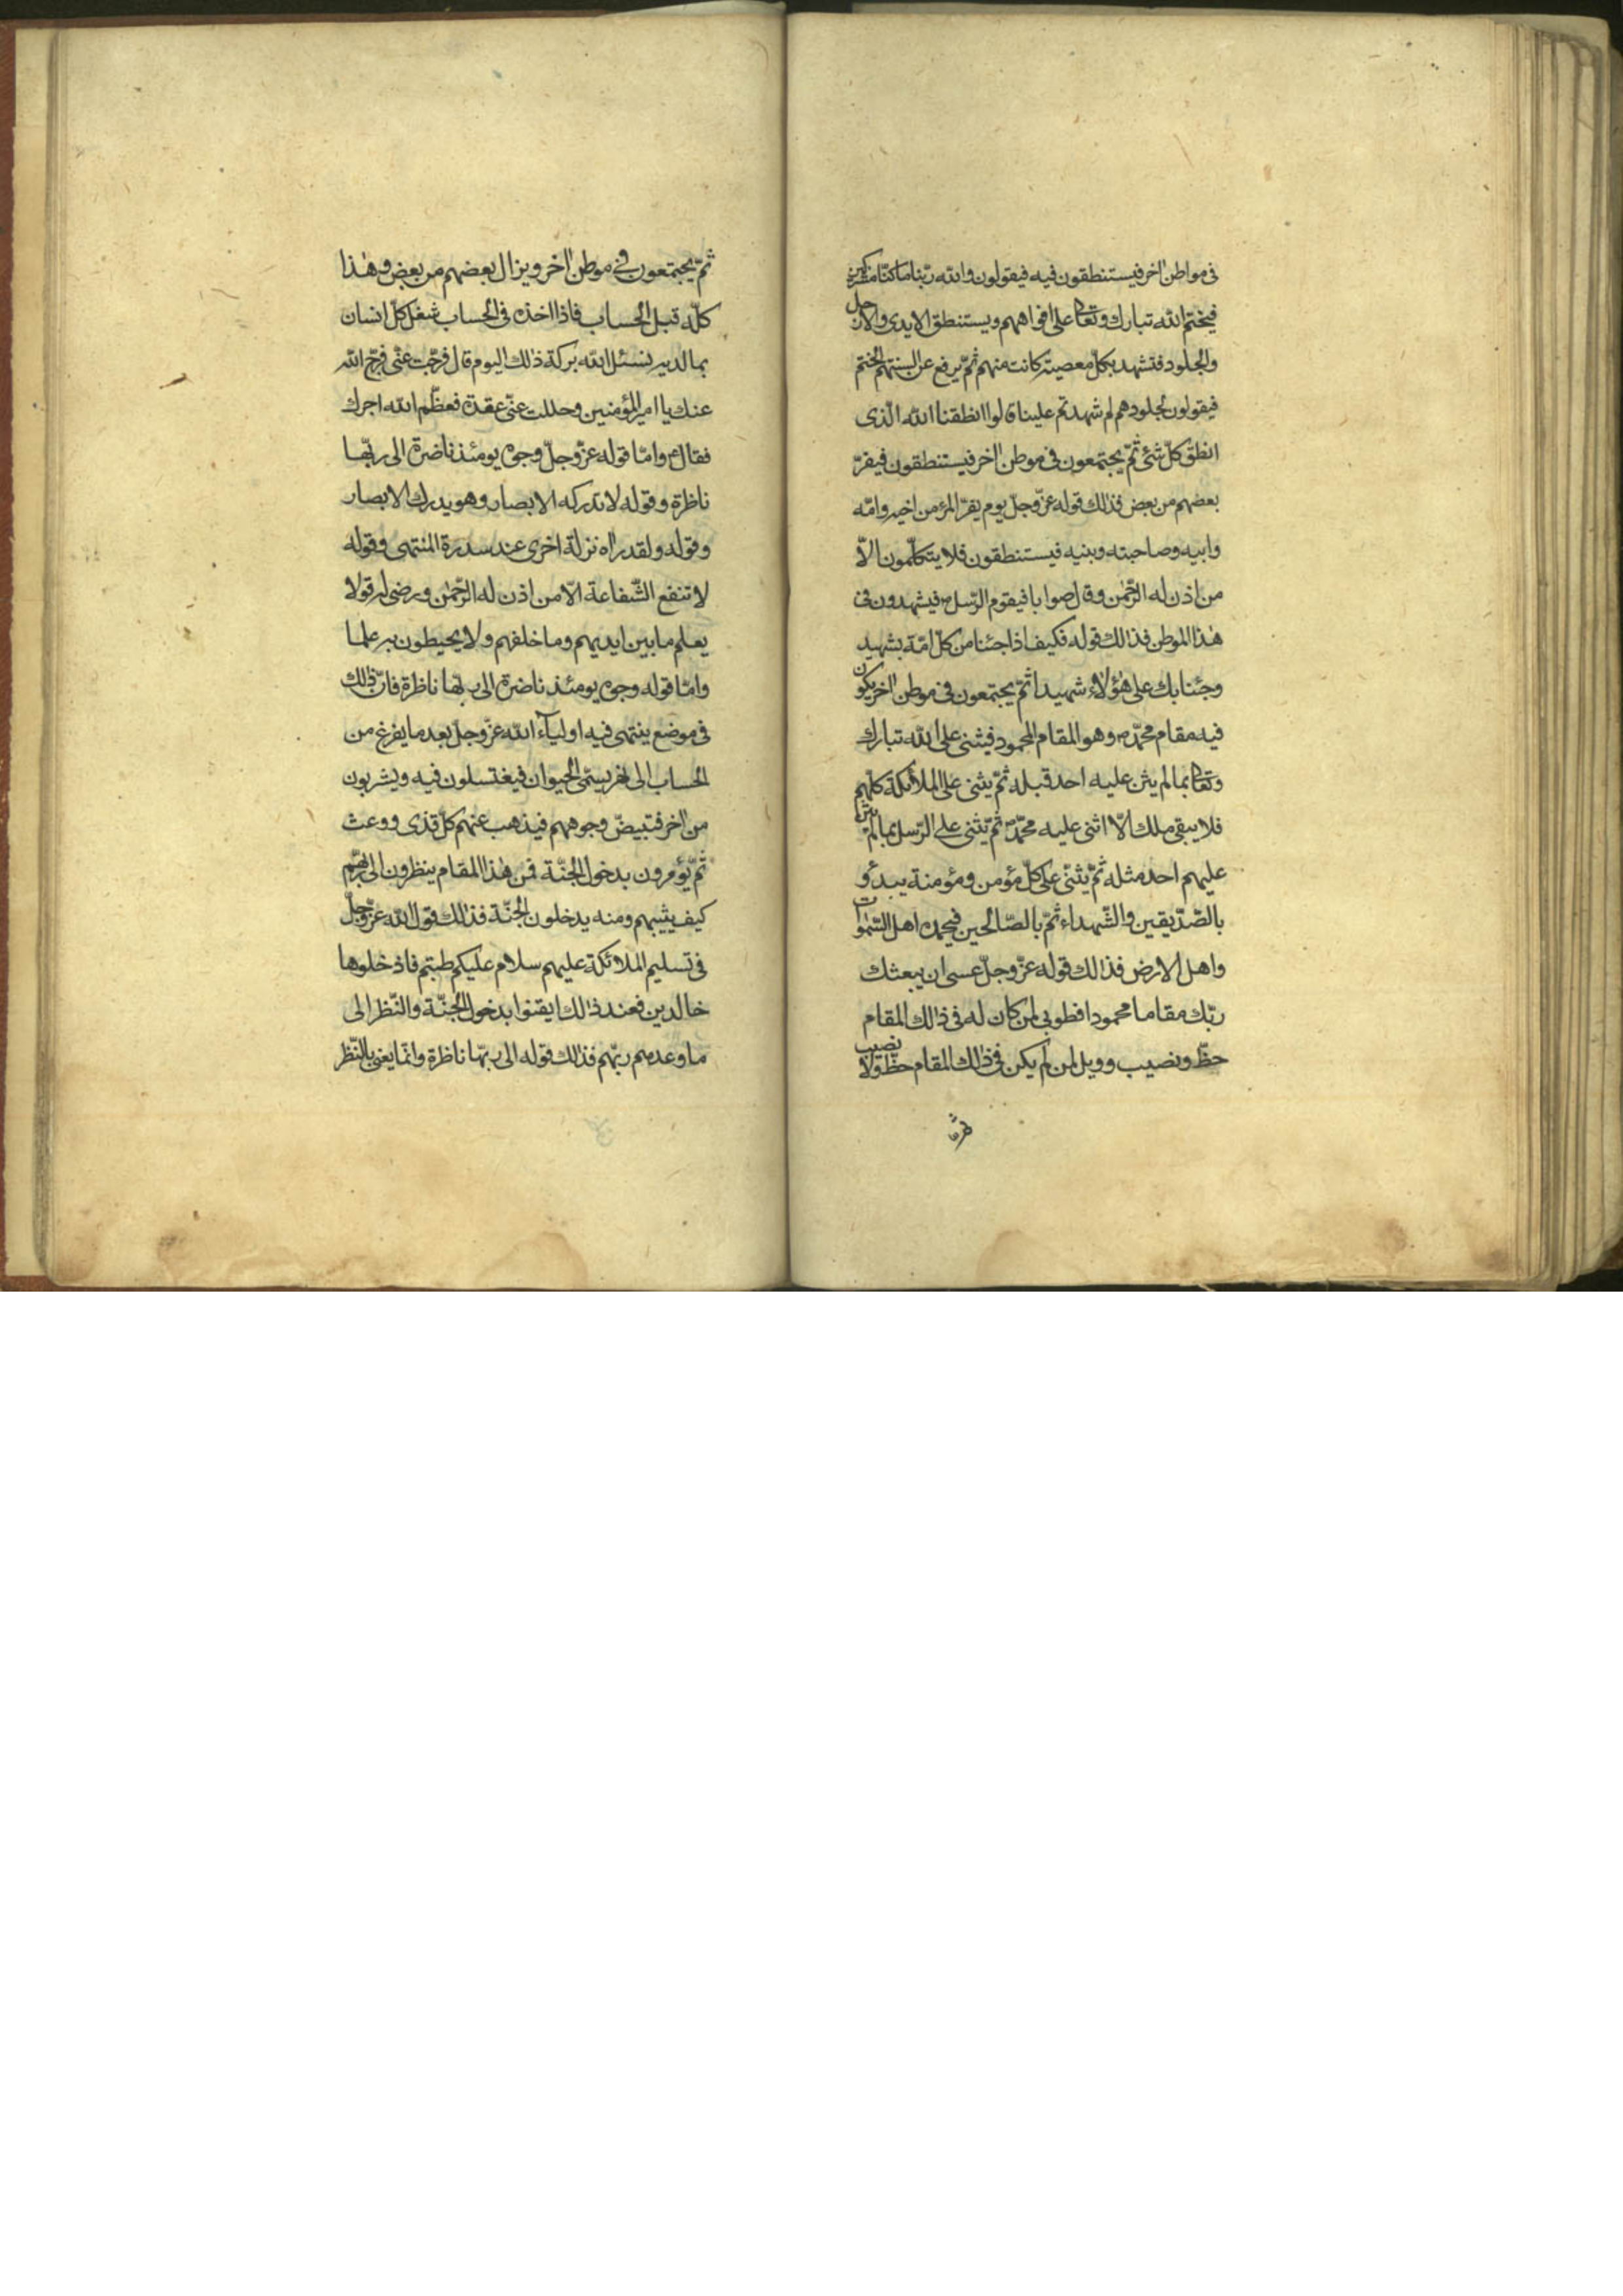 فى مواطن اخر فيستنطقون فيه فيقولون والله ربّنا ما كنّا مشركين
فيختم الله تبارك وتعالى على افواههم ويستنطق الايدى والارجل
والجلود فتشهد بكلّ معصية كانت منهم ثمّ يرفع عن السنتهم الختم
فيقولون لجلودهم لم شهدتم علينا قالوا انطقنا الله الّذى
انطق كلّ شئ ثمّ يجتمعون فى موطن اخر فيستنطقون فيفرّ
بعضهم من بعض فذلك قوله عزّ وجلّ يوم يفرّ المرء من اخيه وامّه
وابيه وصاحبته وبنيه فيستنطقون فلا يتكلّمون الّا
من اذن له الرّحمن وقال صوابا فيقوم الرّسل فيشهدون فى
هذا الموطن فذلك قوله فكيف اذا جئنا من كلّ امّة بشهيد
وجئنا بك على هؤلاء شهيدا ثمّ يجتمعون فى موطن اخر يكون
فيه مقام محمّد ص وهو المقام المحمود فيثنى على الله تبارك
وتعالى بما لم يثن عليه احد قبله ثمّ يثنى على الملائكة كلّهم
فلا يبقى ملك الّا اثنى عليه محمّد ص ثمّ يثنى على الرّسل بما لم يثن
عليهم احد مثله ثمّ يثنى على كلّ مؤمن ومؤمنة يبدأو
بالصّدّيقين والشّهداء ثمّ بالصّالحين فيحمده اهل السّموات
واهل الارض فذلك قوله عزّ وجلّ عسى ان يبعثك
ربّك مقاما محمودا فطوبى لمن كان له فى ذلك المقام
حظّ ونصيب وويل لمن لم يكن فى ذلك المقام حظّ ولا نصيب
ثمّ يجتمعون فى موطن اخر ويزال بعضهم من بعض وهذا
كلّه قبل الحساب فاذا اخذه فى الحساب شغل كلّ انسان
بما لديه نسئل الله بركة ذلك اليوم قال فرّجت عنّى فرّج الله
عنك يا امير المؤمنين وحللت عنّى عقدة فعظّم الله اجرك
فقال ع وامّا قوله عزّ وجلّ وجوه يومئذ ناضرة الى ربّها
ناظرة وقوله لا تدركه الابصار وهو يدرك الابصار
وقوله ولقد راه نزلة اخرى عند سدرة المنتهى وقوله
لا تنفع الشّفاعة الّا من اذن له الرّحمن ورضى له قولا
يعلم ما بين ايديهم وما خلفهم ولا يحيطون به علما
وامّا قوله وجوه يومئذ ناضرة الى ربّها ناظرة فانّ ذلك
فى موضع ينتهى فيه اولياء الله عزّ وجلّ بعد ما يفرغ من
الحساب الى نهر يسمّى الحيوان فيغتسلون فيه ويشربون
من اخر فتبيضّ وجوههم فيذهب عنهم كلّ قذى ووعث
ثمّ يؤمرون بدخول الجنّة فمن هذا المقام ينظرون الى ربّهم
كيف يثيبهم ومنه يدخلون الجنّة فذلك قول الله عزّ وجلّ
فى تسليم الملائكة عليهم سلام عليكم طبتم فادخلوها
خالدين فعند ذلك ايقنوا بدخول الجنّة والنّظر الى
ما وعدهم ربّهم فذلك قوله الى ربّها ناظرة وانّما يعنى بالنّظر